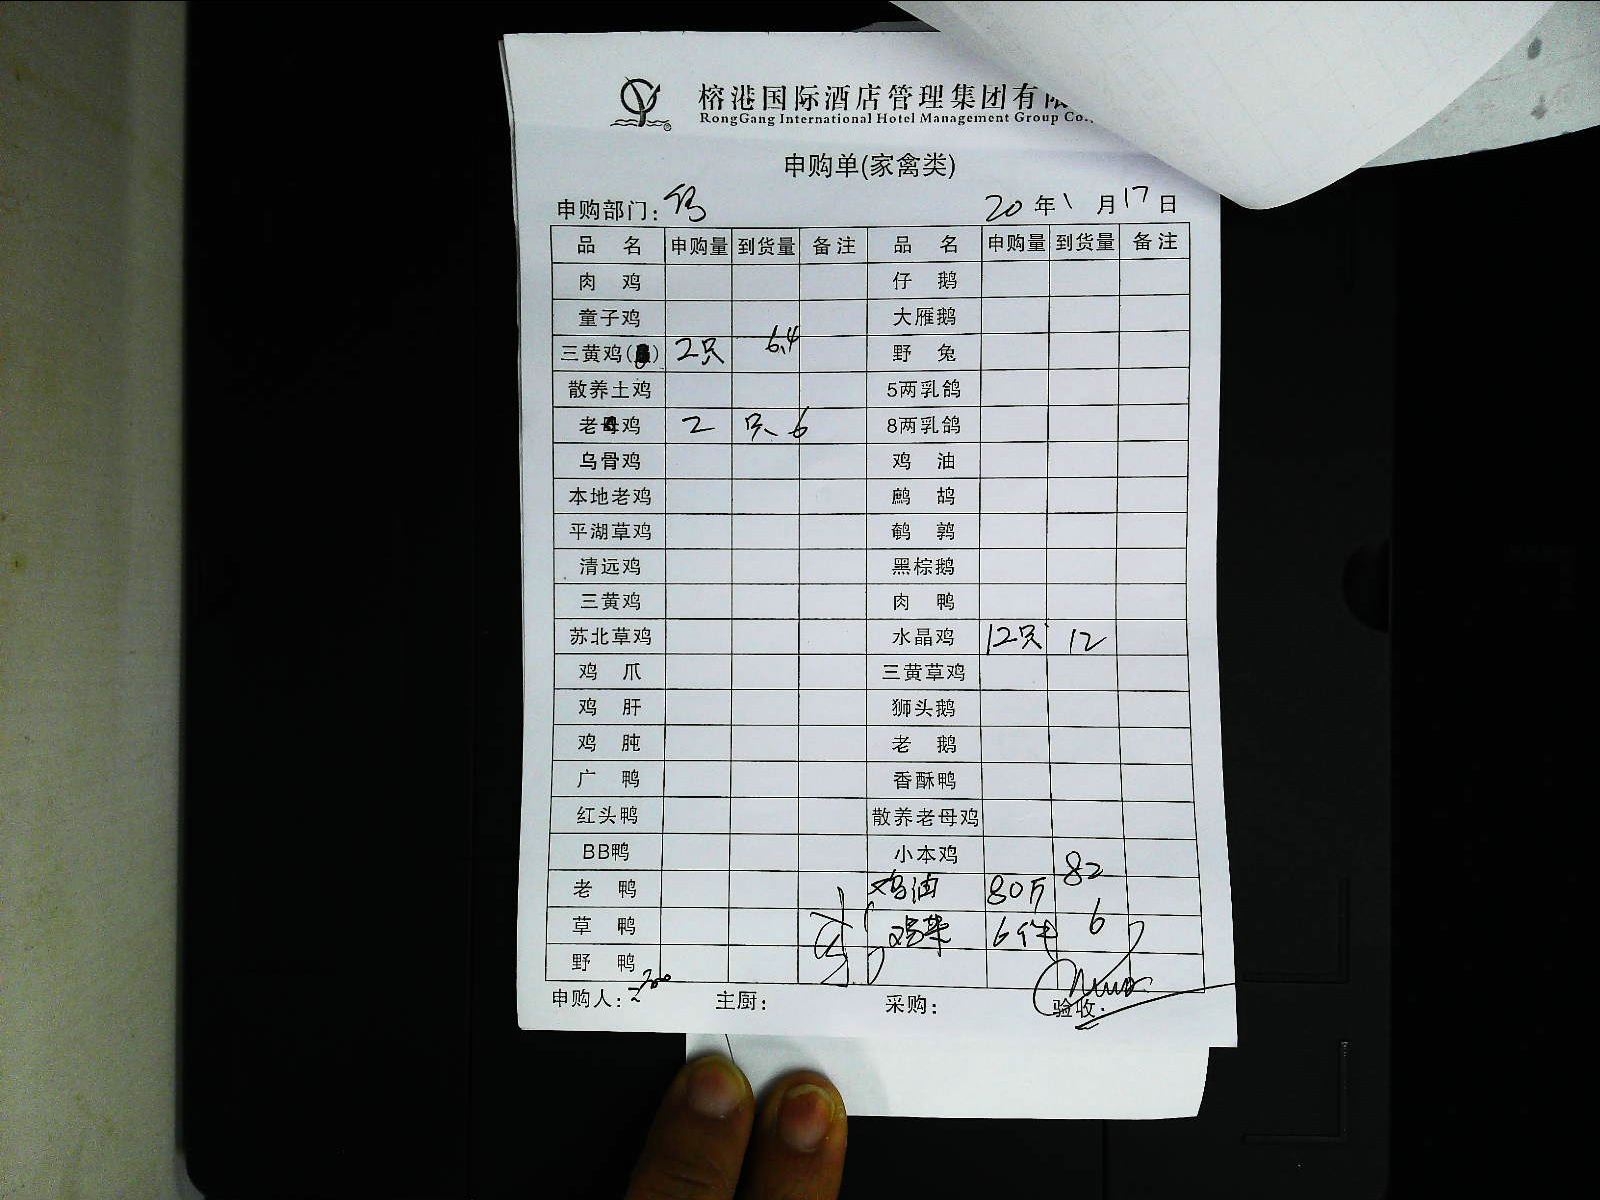 榕港国际酒店管理集团有限
RongGang International Hotel Management Group Co.,
申购单(家禽类)
申购部门：
20年1月17日
品名 申购量 到货量 备注 品名 申购量 到货量 备注
肉鸡 仔鹅
童子鸡 大雁鹅
三黄鸡( ) 2只 6.4 野兔
散养土鸡 5两乳鸽
老母鸡 2只 6 8两乳鸽
乌骨鸡 鸡油
本地老鸡 鹧鸪
平湖草鸡 鹌鹑
清远鸡 黑棕鹅
三黄鸡 肉鸭
苏北草鸡 水晶鸡 12只 12
鸡爪 三黄草鸡
鸡肝 狮头鹅
鸡肫 老鹅
广鸭 香酥鸭
红头鸭 散养老母鸡
BB鸭 小本鸡
老鸭 鸡油 80斤 82
草鸭 6件 6
野鸭
申购人： 主厨： 采购： 验收：